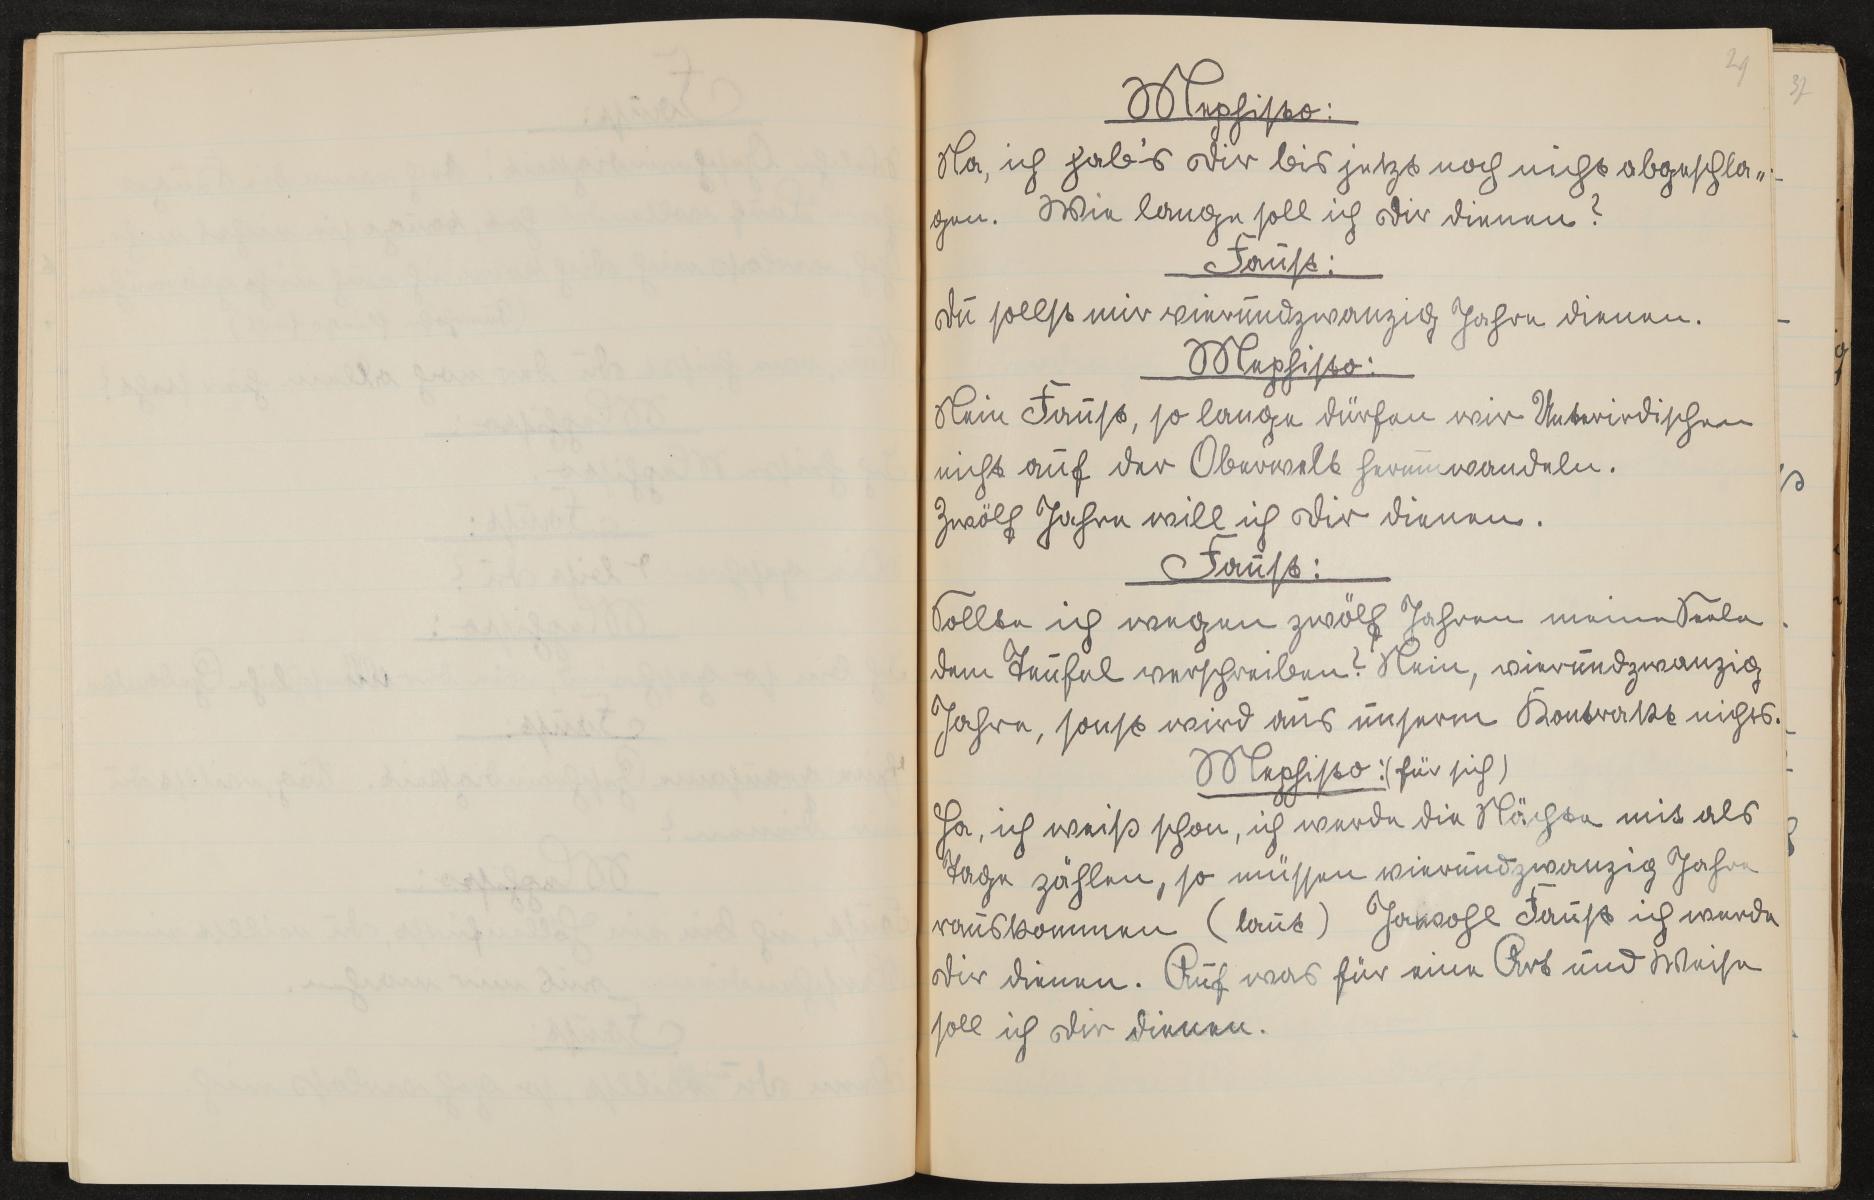 29
37
Mephisto:
Na, ich hab's dir bis jetzt noch nicht abgeschla„-
gen. Wie lange soll ich dir dienen?
Faust:
Du sollst mir vierundzwanzig Jahre dienen.
Mephisto:
Nein Faust, so lange dürfen wir Unterirdischen
nicht auf der Oberwelt herumwandeln.
Zwölf Jahre will ich dir dienen.
Faust:
Sollte ich wegen zwölf Jahren meine Seele
dem Teufel verschreiben? Nein, vierundzwanzig
Jahre, sonst wird aus unserm Kontrakt nichts.
Mephisto: (für sich)
Ha, ich weiß schon, ich werde die Nächte mit als
Tage zählen, so müssen vierundzwanzig Jahre
rauskommen (laut) Jawohl Faust ich werde
dir dienen. Auf was für eine Art und Weise
soll ich dir dienen.